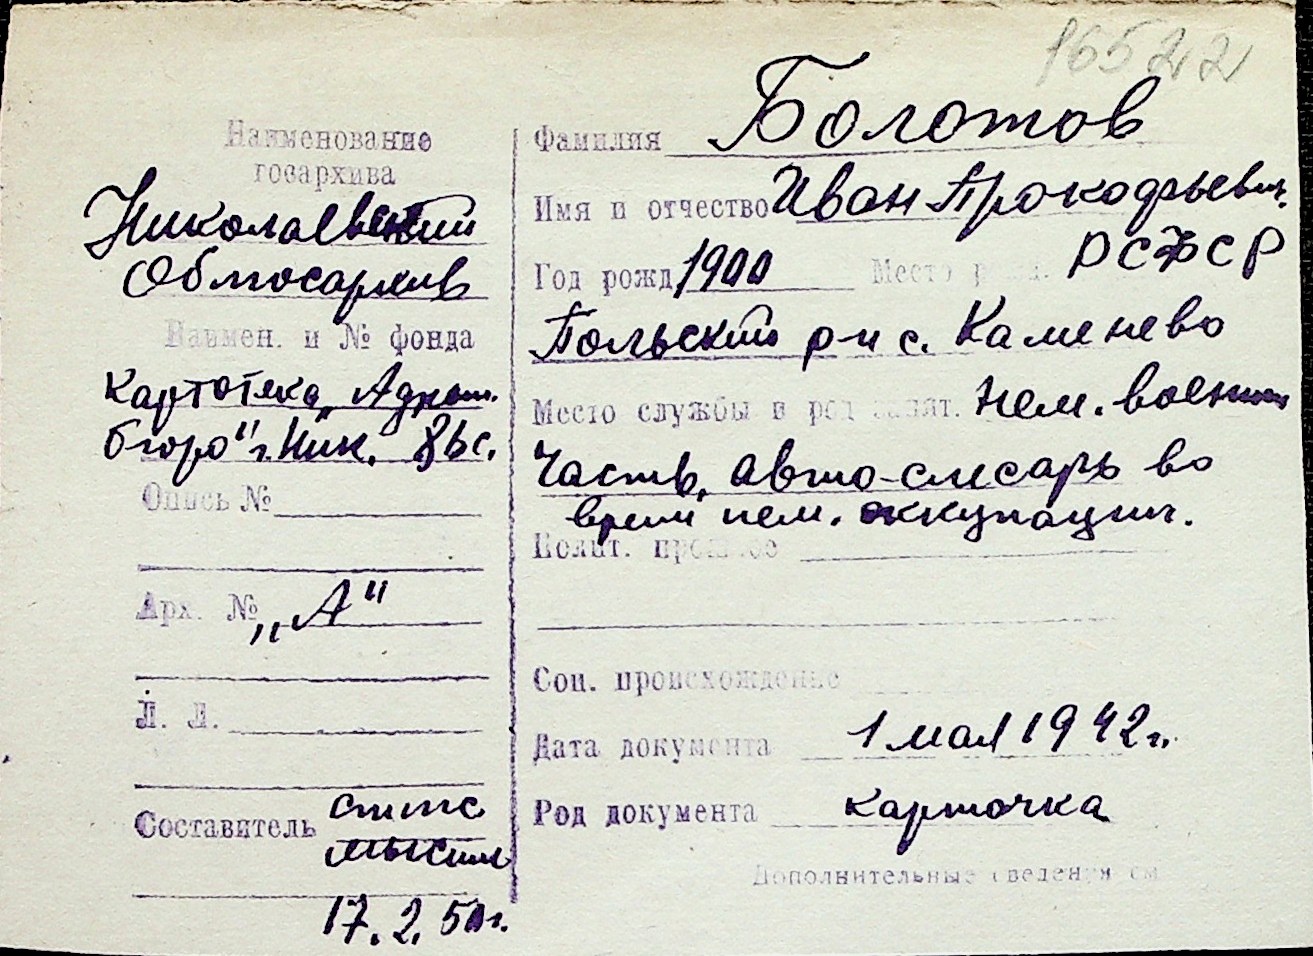 16522
Наименование
госархива
Николаевский
Облгосархив
Наимен. и № фонда
Картотека „Адресн.
бюро" г. Ник.
Опись №
Арх. № „А"
Л. Л.
Составитель
17.2.50г.
Фамилия Болотов
Имя и отчество Иван Прокофьевич.
Год рожд. 1900 Место рожд. РСФСР
Польский р-н с. Каменево
Место службы и род занят. нем. военная
часть, авто-слесарь во
время нем. оккупации.
Полит. прошлое
Соц. происхождение
Дата документа 1 мая 1942 г.
Род документа карточка
Дополнительные сведения см